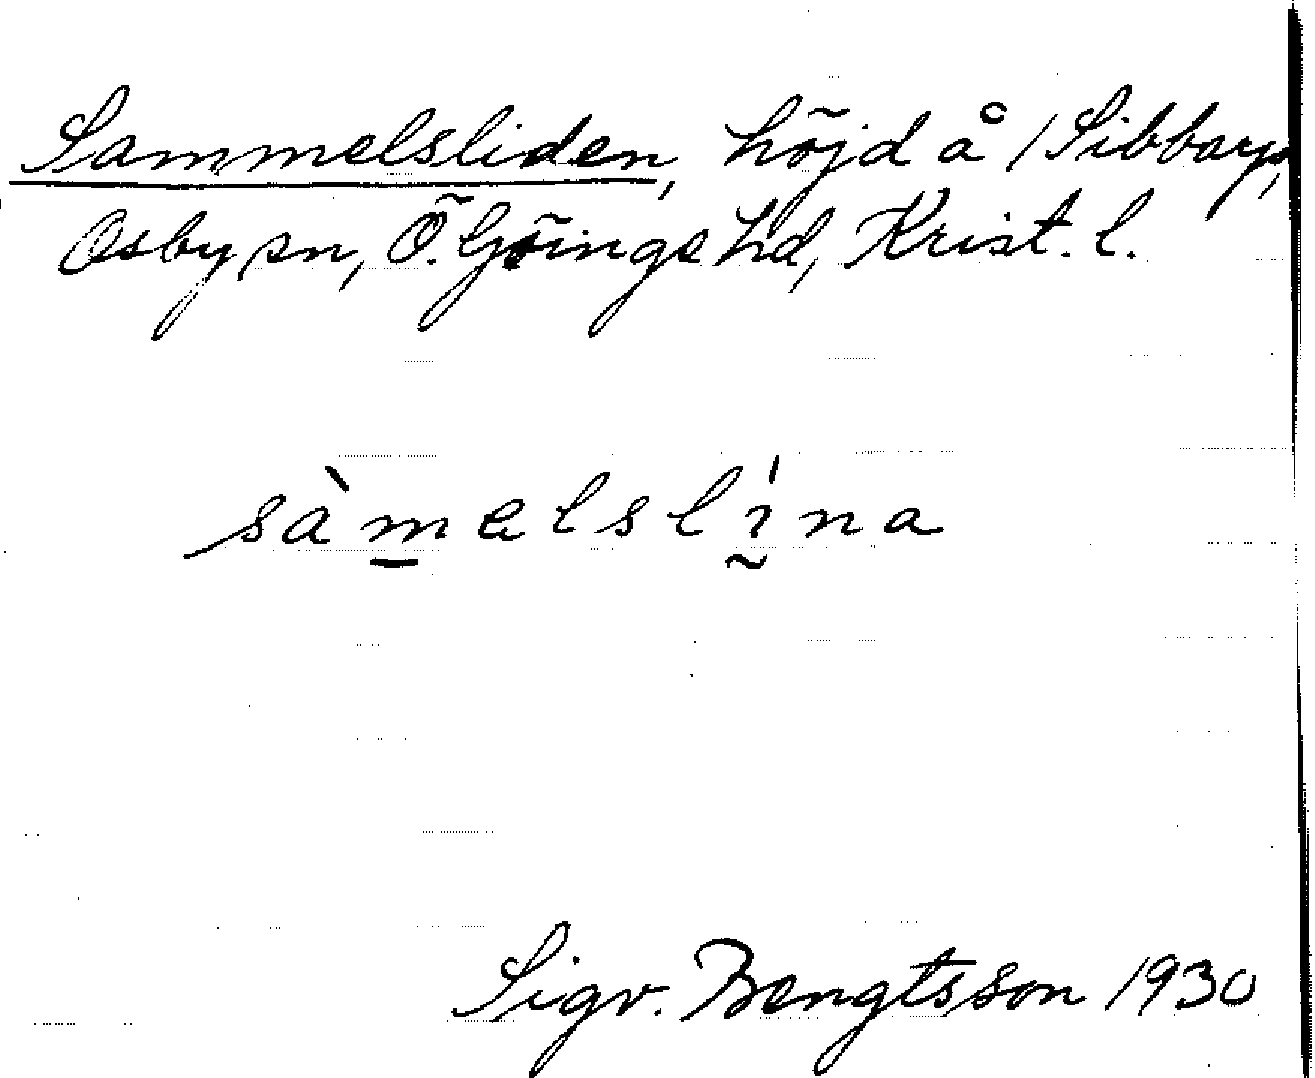 Sammelsliden, höjd å /Sibbarp,
Osby sn, Ö. Göinge hd, Krist. l.
sàmelslína
Sigv. Bengtsson 1930